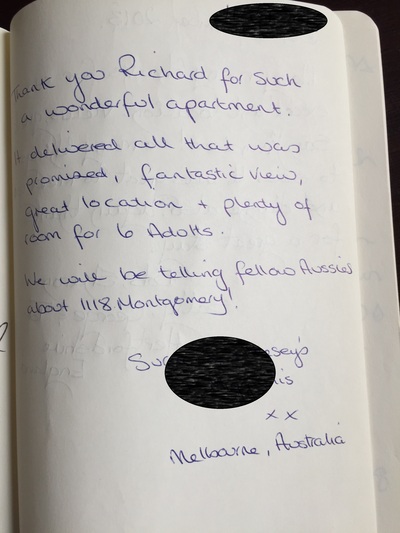 Thank you Richard for such
a wonderful apartment.
It delivered all that was
promised, fantastic view,
great location + plenty of
room for 6 Adults.
We will be telling fellow Aussies
about 1118 Montgomery!
x x
Melbourne, Australia